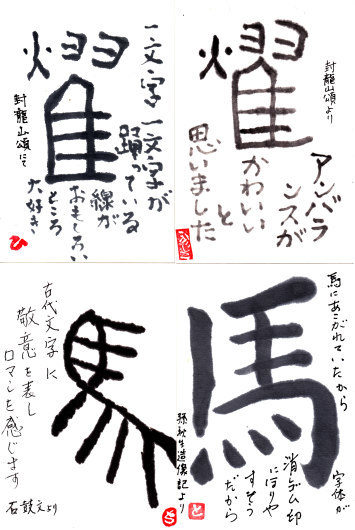 燿
一文字一文字が
踊っている
線が
おもしろい
ところ
大好き
封龍山頌にて
ひ
燿
封龍山頌より
アンバラ
ンスが
かわいい
と
思いました
馬
古代文字に
敬意を表し
ロマンを感じます
石鼓文より
馬
馬にあこがれていたから
字体が
消しゴム印
にほりや
すそう
だから
造像記より
と